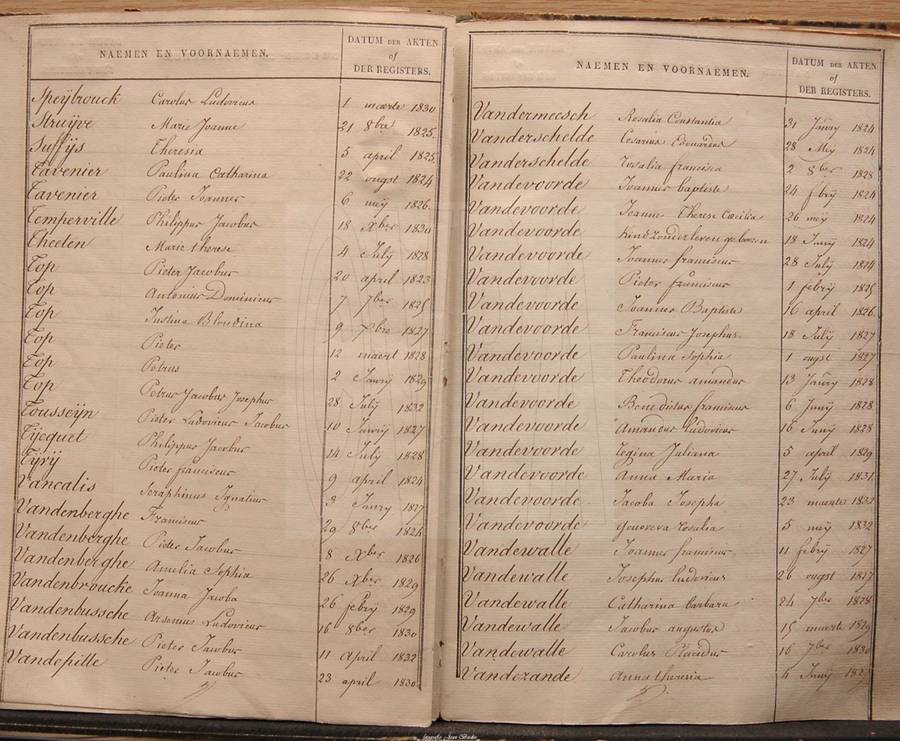 NAEMEN EN VOORNAEMEN. DATUM DER AKTEN
of
DER REGISTERS.
Speijbrouck Carolus Ludovicus 1 maerte 1830
Struijve Marie Joanne 21 8bre 1825
Suffijs Theresia 5 april 1825
Tavenier Paulina Catharina 22 ougst 1824
Tavenier Pieter Joannes 6 meij 1826
Temperville Philippus Jacobus 18 Xber 1830
Theeten Marie therese 4 July 1828
Top Pieter Jacobus 20 april 1823
Top Antonius Dominicus 7 7ber 1825
Top Justina Blondina 9 7bre 1827
Top Pieter 12 maert 1828
Top Petrus 2 Janrij 1829
Top Petrus Jacobus Josephus 28 Julij 1832
Tousseijn Pieter Ludovicus Jacobus 10 1827
Tijcquet Philippus Jacobus 14 July 1828
Tijrij Pieter franciscus 9 april 1824
Vancalis Seraphinus Ignatius 3 Janry 1827
Vandenberghe Franciscus 29 8ber 1824
Vandenberghe Pieter Jacobus 8 Xber 1826
Vandenberghe Amelia Sophia 26 Xber 1829
Vandenbroucke Joanna Jacoba 26 febrij 1829
Vandenbussche Arsenius Ludovicus 16 8ber 1830
Vandenbussche Pieter Jacobus 11 April 1832
Vandepitte Pieter Jacobus 23 april 1830
NAEMEN EN VOORNAEMEN. DATUM DER AKTEN
of
DER REGISTERS.
Vandermeesch Rosalia Constantia 31 Janry 1824
Vanderschelde Cesarius Edouardus 28 Meij 1824
Vanderschelde Rosalia francisca 2 8ber 1828
Vandevoorde Joannes baptiste 24 fbrij 1824
Vandevoorde Joanne Therese Cæcilia 26 meij 1824
Vandevoorde Kind zonder leven geboren 18 Junij 1824
Vandevoorde Joannes franciscus 28 Julij 1824
Vandevoorde Pieter franciscus 1 febrij 1825
Vandevoorde Joannes Baptiste 16 april 1826
Vandevoorde Franciscus Josephus 18 Julij 1827
Vandevoorde Paulina Sophia 1 ougst 1827
Vandevoorde Theodorus amandus 13 Janrij 1828
Vandevoorde Benedictus franciscus 6 Junij 1828
Vandevoorde Amandus Ludovicus 16 Junij 1828
Vandevoorde Regina Juliana 5 april 1829
Vandevoorde Anna Maria 27 Julij 1831
Vandevoorde Jacoba Josepha 23 maerte 1832
Vandevoorde Genoveva rosalia 5 meij 1832
Vandewalle Joannes franciscus 11 febrij 1827
Vandewalle Josephus Ludovicus 26 ougst 1827
Vandewalle Catharina barbara 24 7ber 1828
Vandewalle Jacobus augustus 15 maerte 1829
Vandewalle Carolus Placidus 16 7ber 1830
Vandezande Anna theresia 4 Junij